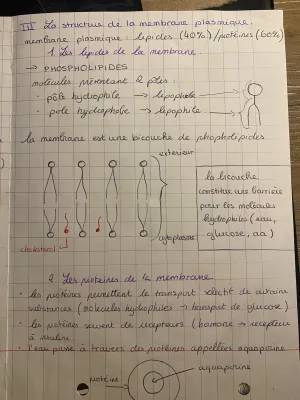 III La structure de la membrane plasmique.
membrane plasmique : lipides (40%) / protéines (60%)
1. Les lipides de la membrane.
→ PHOSPHOLIPIDES
molécules présentant 2 pôles :
· pôle hydrophile → lipophobe
· pôle hydrophobe → lipophile
la membrane est une bicouche de phospholipides
extérieur
cytoplasme
cholestérol
la bicouche
constitue une barrière
pour les molécules
hydrophiles (eau,
glucose, aa)
2. Les protéines de la membrane
· les protéines permettent le transport sélectif de certaines
substances (molécules hydrophiles → transport de glucose)
· les protéines servent de récepteurs (hormone → récepteur
à insuline
· l'eau passe à travers des protéines appelées aquaporine
protéine
aquaporine